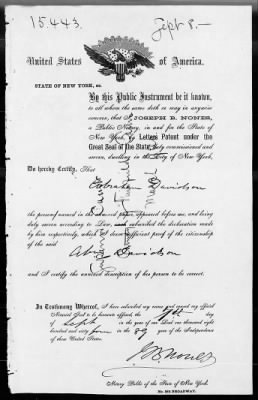 15.443.
Sept 8.—
United States of America.
STATE OF NEW YORK, ss.
By this Public Instrument be it known,
to all whom the same doth or may in anywise
concern, that I JOSEPH B. NONES,
a Public Notary, in and for the State of
New York, by Letters Patent under the
Great Seal of the State, duly commissioned and
sworn, dwelling in the City of New York,
Do hereby Certify, That
Abraham Davidson
the person named in the annexed paper, appeared before me, and being
duly sworn according to Law, and subscribed the declaration made
by him respectively, which I deem sufficient proof of the citizenship
of the said
Abm Davidson
and I certify the annexed description of his person to be correct.
In Testimony Whereof, I have subscribed my name and caused my official
Notarial Seal to be hereunto affixed, the day
of Sept in the year of our Lord one thousand eight
hundred and sixty four in the 89 year of the Independence
of these United States.
J B Nones
Notary Public of the State of New York.
BROADWAY.